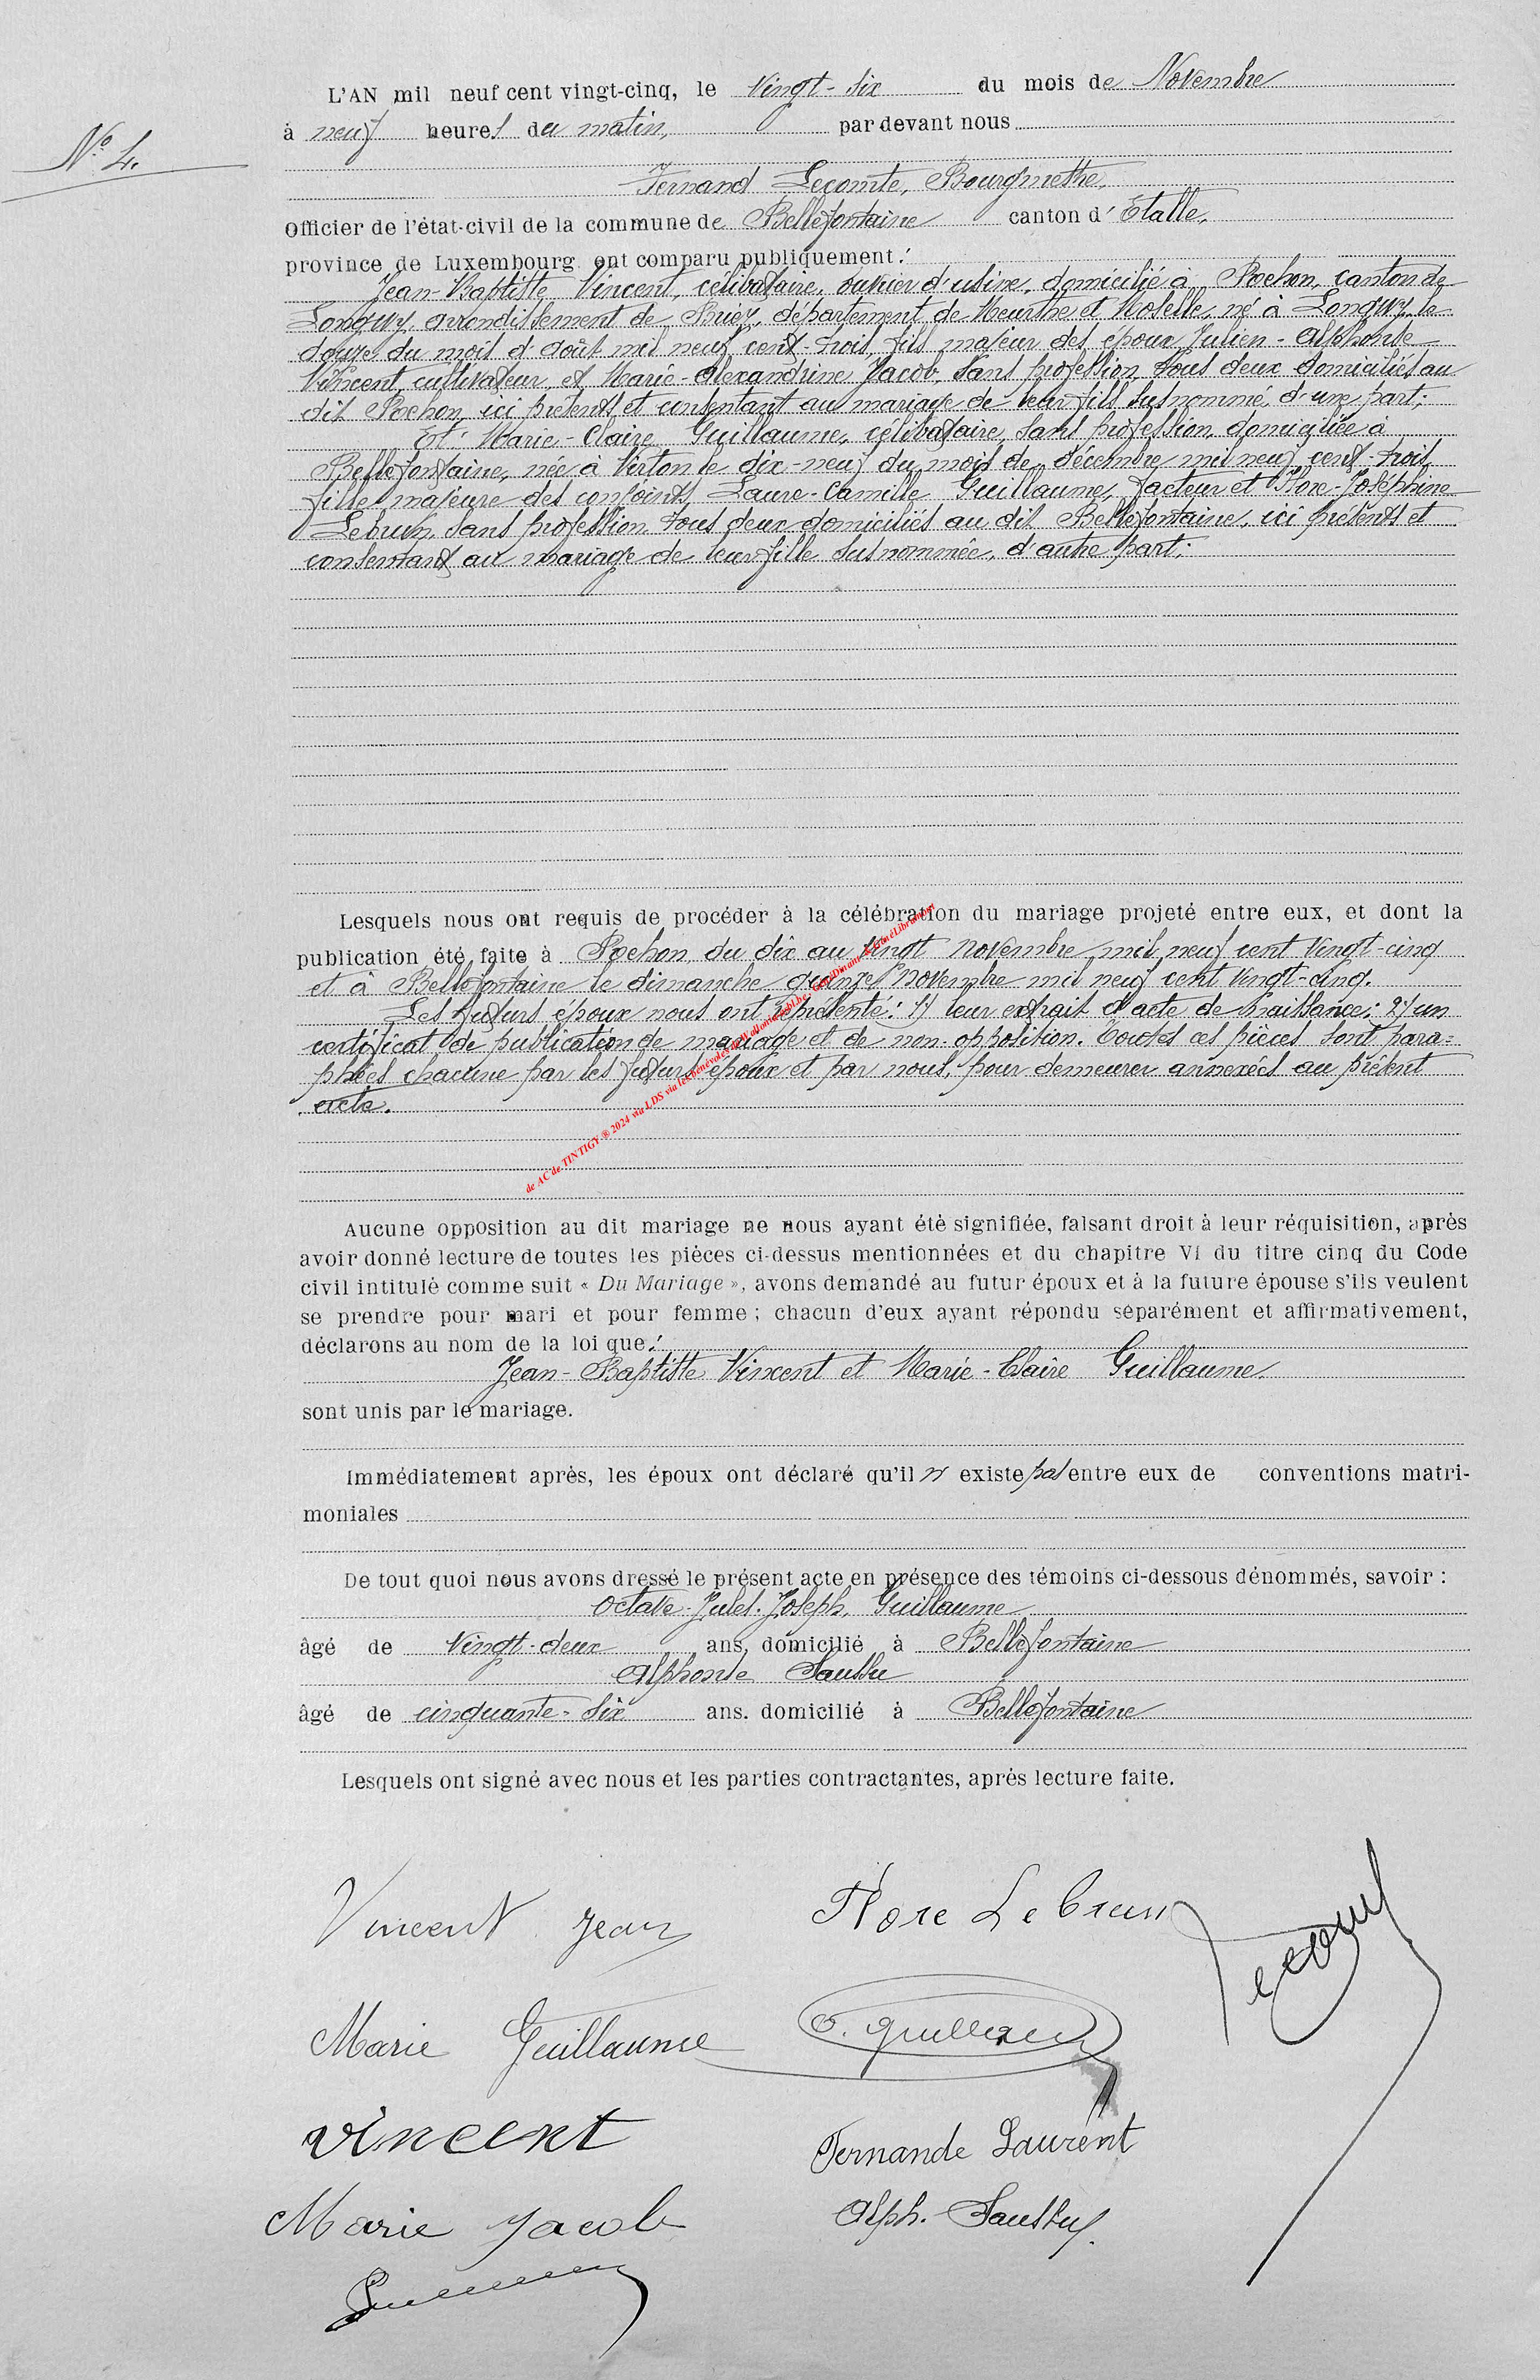 N° 4.
L'AN mil neuf cent vingt-cinq, le Vingt-six du mois de Novembre
à neuf heures du matin, par devant nous
Fernand Lecomte, Bourgmestre,
Officier de l'état-civil de la commune de Bellefontaine canton d'Etalle,
province de Luxembourg ont comparu publiquement:
Jean-Baptiste Vincent, célibataire, ouvrier d'usine, domicilié à Réhon, canton de
Longwy, arrondissement de Briey, département de Meurthe et Moselle, né à Longwy, le
douze du mois d'août mil neuf cent-trois, fils majeur des époux Julien-Alphonse
Vincent, cultivateur, et Marie-Alexandrine Jacob, sans profession, tous deux domiciliés au
dit Réhon, ici présents et consentant au mariage de leur fils susnommé, d'une part;
Et Marie-Claire Guillaume, célibataire, sans profession, domiciliée à
Bellefontaine, née à Virton le dix-neuf du mois de décembre mil neuf cent-trois,
fille majeure des conjoints Laure-Camille Guillaume, facteur et Flore-Joséphine
Lebrun, sans profession tous deux domiciliés au dit Bellefontaine, ici présents et
consentant au mariage de leur fille susnommée, d'autre part;
Lesquels nous ont requis de procéder à la célébration du mariage projeté entre eux, et dont la
publication été faite à Réhon du dix au vingt novembre mil neuf cent vingt-cinq
et à Bellefontaine le dimanche quinze novembre mil neuf cent vingt-cinq.
Les futurs époux nous ont représenté: 1) leur extrait d'acte de naissance; 2) un
certificat de publication de mariage et de non-opposition. Toutes ces pièces sont para=
phées chacune par les futurs époux et par nous, pour demeurer annexées au présent
acte.
de AC de TINTIGY ® 2024 via LDS via les bénévoles de
Aucune opposition au dit mariage ne nous ayant été signifiée, faisant droit à leur réquisition, après
avoir donné lecture de toutes les pièces ci-dessus mentionnées et du chapitre VI du titre cinq du Code
civil intitulé comme suit « Du Mariage », avons demandé au futur époux et à la future épouse s'ils veulent
se prendre pour mari et pour femme; chacun d'eux ayant répondu séparément et affirmativement,
déclarons au nom de la loi que:
Jean-Baptiste Vincent et Marie-Claire Guillaume.
sont unis par le mariage.
Immédiatement après, les époux ont déclaré qu'il n'existe pas entre eux de conventions matri-
moniales
De tout quoi nous avons dressé le présent acte en présence des témoins ci-dessous dénommés, savoir:
Octave-Jules-Joseph, Guillaume
âgé de Vingt-deux ans, domicilié à Bellefontaine
Alphonse Saussu
âgé de cinquante-six ans. domicilié à Bellefontaine
Lesquels ont signé avec nous et les parties contractantes, après lecture faite.
Vincent Jean
Flore Lebrun
Lecomte
Marie Guillaume
O. Guillaume
Vincent
Fernande Laurent
Marie Jacob
Alph. Saussu